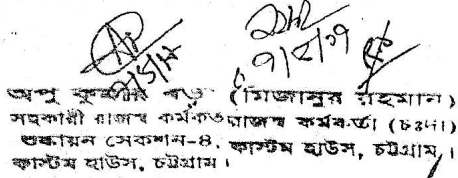 ৭/৫/১৭
অপু কুমার বড় (মিজানুর রহমান)
সহকারী রাজস্ব কর্মকর্ত রাজস্ব কর্মকর্তা (চঃদাঃ)
শুল্কায়ন সেকশন-৪, কাস্টম হাউস, চট্টগ্রাম।
কাস্টম হাউস, চট্টগ্রাম।